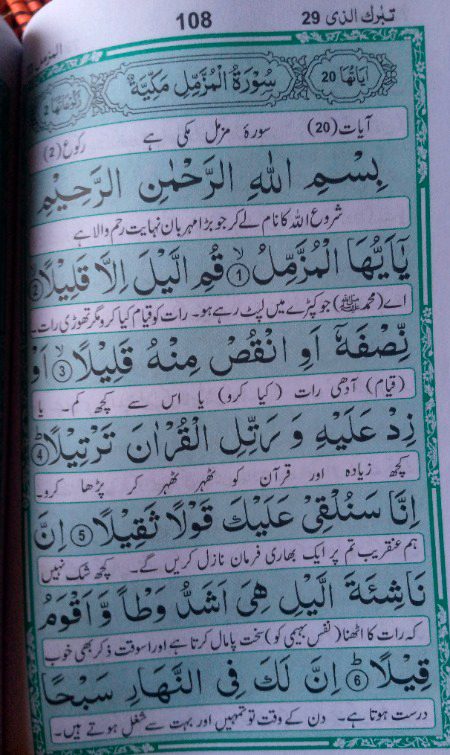 تبرك الذى 29 108 المزمل
اياتها 20 سُوْرَةُ الْمُزَّمِّلِ مَكِّيَّةٌ ركوعاتها 2
آیات (20) سورۂ مزمل مکی ہے رکوع (2)
بِسْمِ اللّٰهِ الرَّحْمٰنِ الرَّحِيْمِ
شروع اللہ کا نام لے کر جو بڑا مہربان نہایت رحم والا ہے
يٰۤاَيُّهَا الْمُزَّمِّلُۙ ١ قُمِ الَّيْلَ اِلَّا قَلِيْلًاۙ ٢
اے (محمد ﷺ) جو کپڑے میں لپٹ رہے ہو۔ رات کو قیام کیا کرو مگر تھوڑی رات۔
نِّصْفَهٗۤ اَوِ انْقُصْ مِنْهُ قَلِيْلًاۙ ٣ اَوْ
(قیام) آدھی رات (کیا کرو) یا اس سے کچھ کم۔ یا
زِدْ عَلَيْهِ وَ رَتِّلِ الْقُرْاٰنَ تَرْتِيْلًاؕ ٤
کچھ زیادہ اور قرآن کو ٹھہر ٹھہر کر پڑھا کرو۔
اِنَّا سَنُلْقِيْ عَلَيْكَ قَوْلًا ثَقِيْلًا ٥ اِنَّ
ہم عنقریب تم پر ایک بھاری فرمان نازل کریں گے۔ کچھ شک نہیں
نَاشِئَةَ الَّيْلِ هِيَ اَشَدُّ وَطْاً وَّ اَقْوَمُ
کہ رات کا اٹھنا (نفس بہیمی کو) سخت پامال کرتا ہے اور اسوقت ذکر بھی خوب
قِيْلًاؕ ٦ اِنَّ لَكَ فِي النَّهَارِ سَبْحًا
درست ہوتا ہے۔ دن کے وقت تو تمہیں اور بہت سے شغل ہوتے ہیں۔